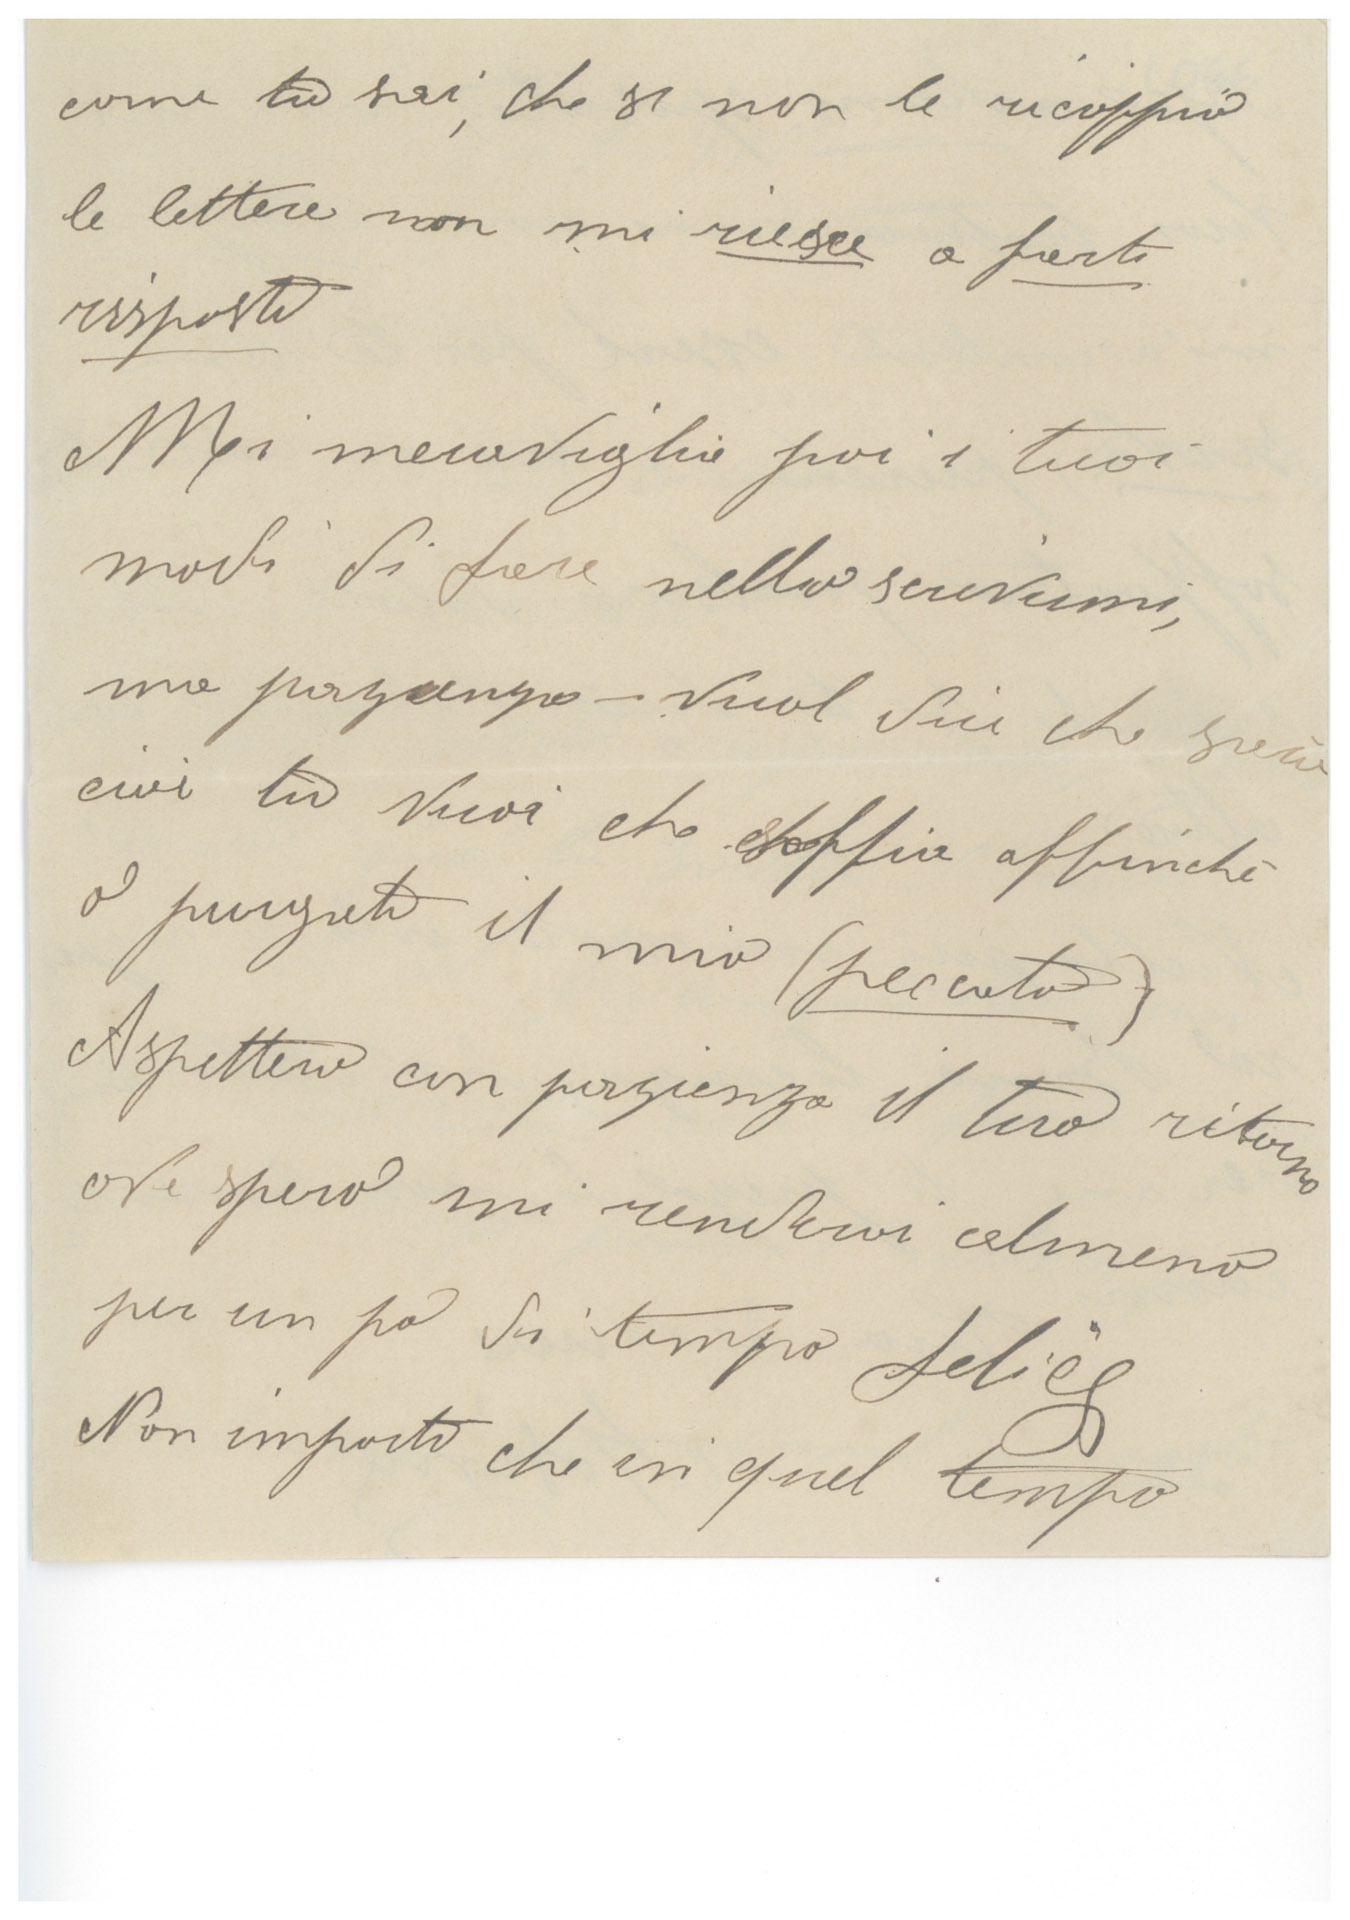 come tu sai, che se non le ricoppio
le lettere non mi riesce a farti
risposta
Mi meraviglia poi i tuoi
modi di fare nello scrivermi,
ma pazienza – vuol dire che
tu vuoi che soffra affinchè
o purgato il mio (peccato)
Aspetterò con pazienza il tuo ritorno
ove spero mi renderai almeno
per un pò di tempo felice
Non importa che in quel tempo